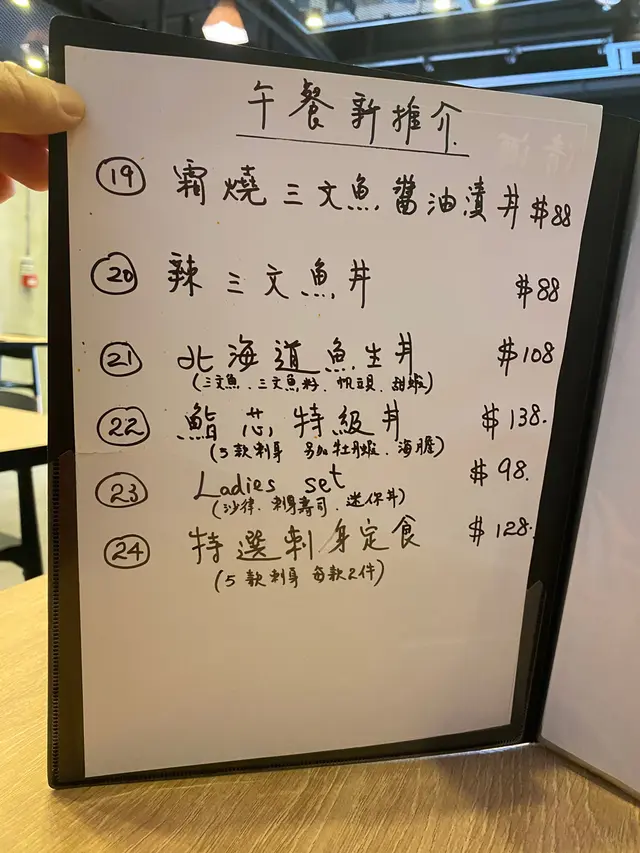 午餐新推介
19 霜燒三文魚醬油漬丼 $88
20 辣三文魚丼 $88
21 北海道魚生丼 $108
(三文魚．三文魚籽．帆立貝．甜蝦)
22 鮨芯特級丼 $138.
(5款刺身 另加牡丹蝦．海膽)
23 Ladies set $98.
(沙律．刺身壽司．迷你丼)
24 特選刺身定食 $128.
(5款刺身 每款2件)